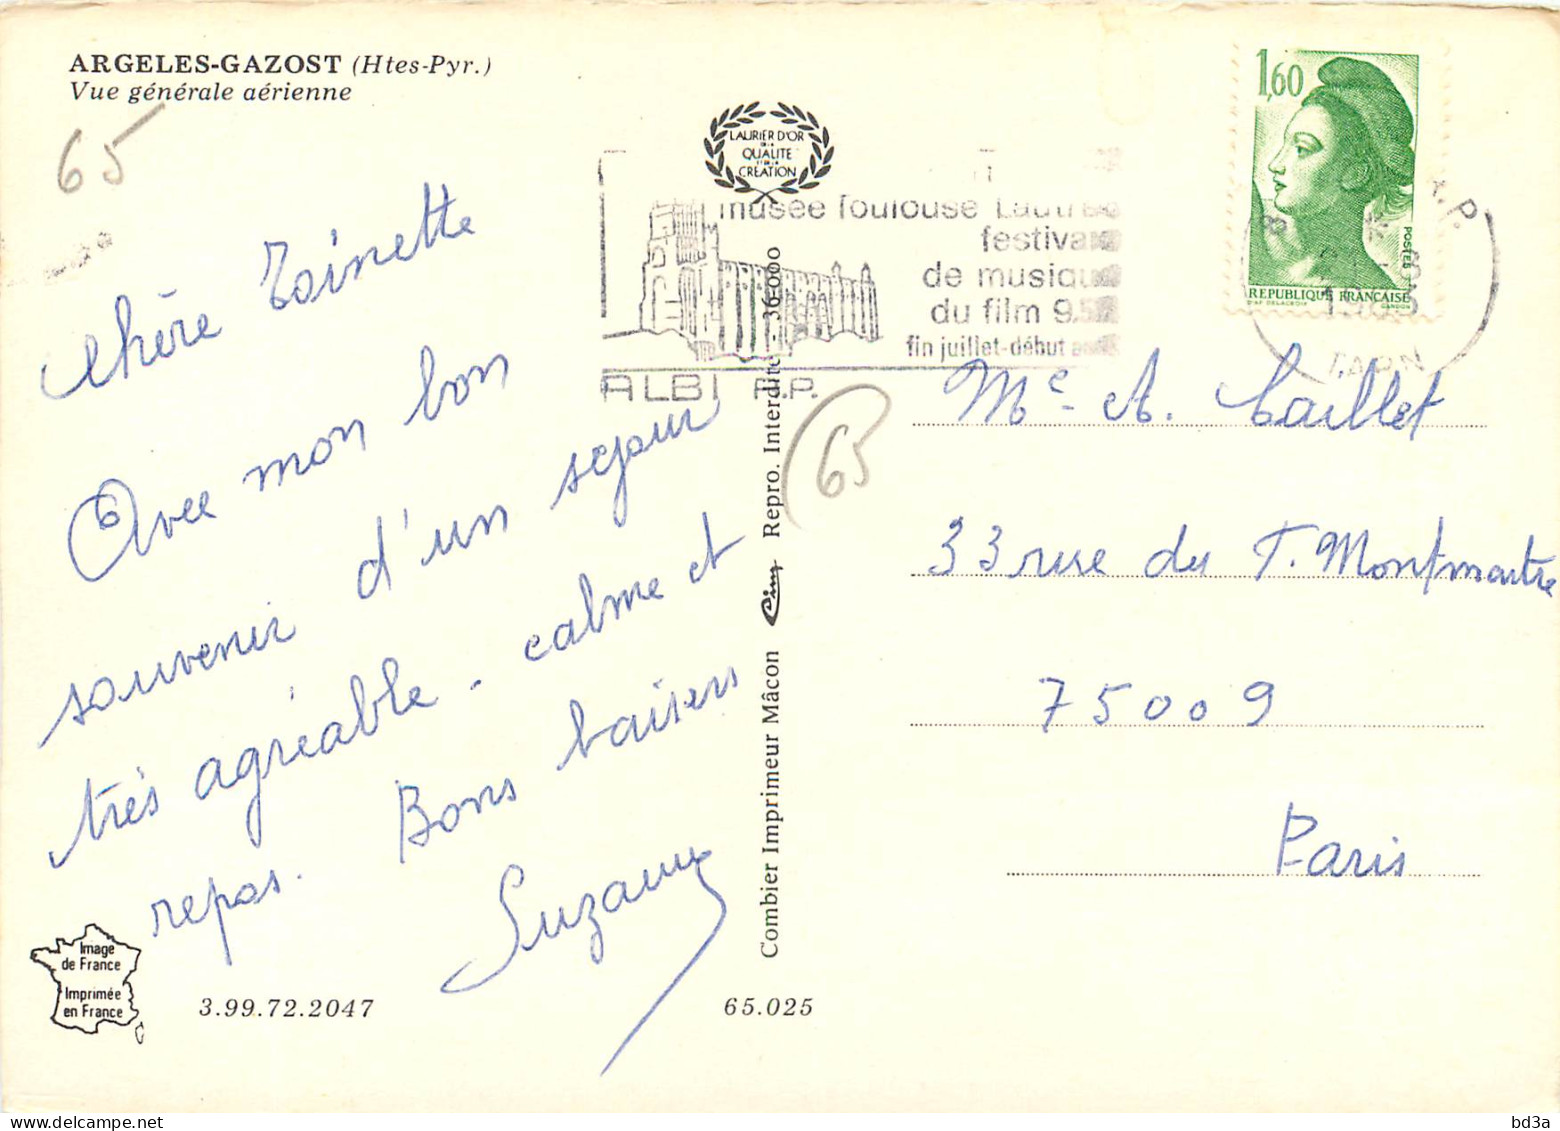 ARGELES-GAZOST (Htes-Pyr.)
Vue générale aérienne
65
LAURIER D'OR
DE LA
QUALITE
ET DE LA
CREATION
musée Toulouse Lautrec
festival
de musique
du film 9.5
fin juillet-début
ALBI R.P.
1,60
POSTES
REPUBLIQUE FRANÇAISE
D'AP DELACROIX GANDON
R.P.
TARN
chère Toinette
Avec mon bon
souvenir d'un sejour
très agréable - calme et
repos. Bons baisers
Suzanne
65
Combier Imprimeur Mâcon Cim Repro. Interdite - 36-000
Me - A. Caillet
33 rue du F. Montmartre
75009
Paris
Image
de France
Imprimée
en France
3.99.72.2047
65.025
bd3a